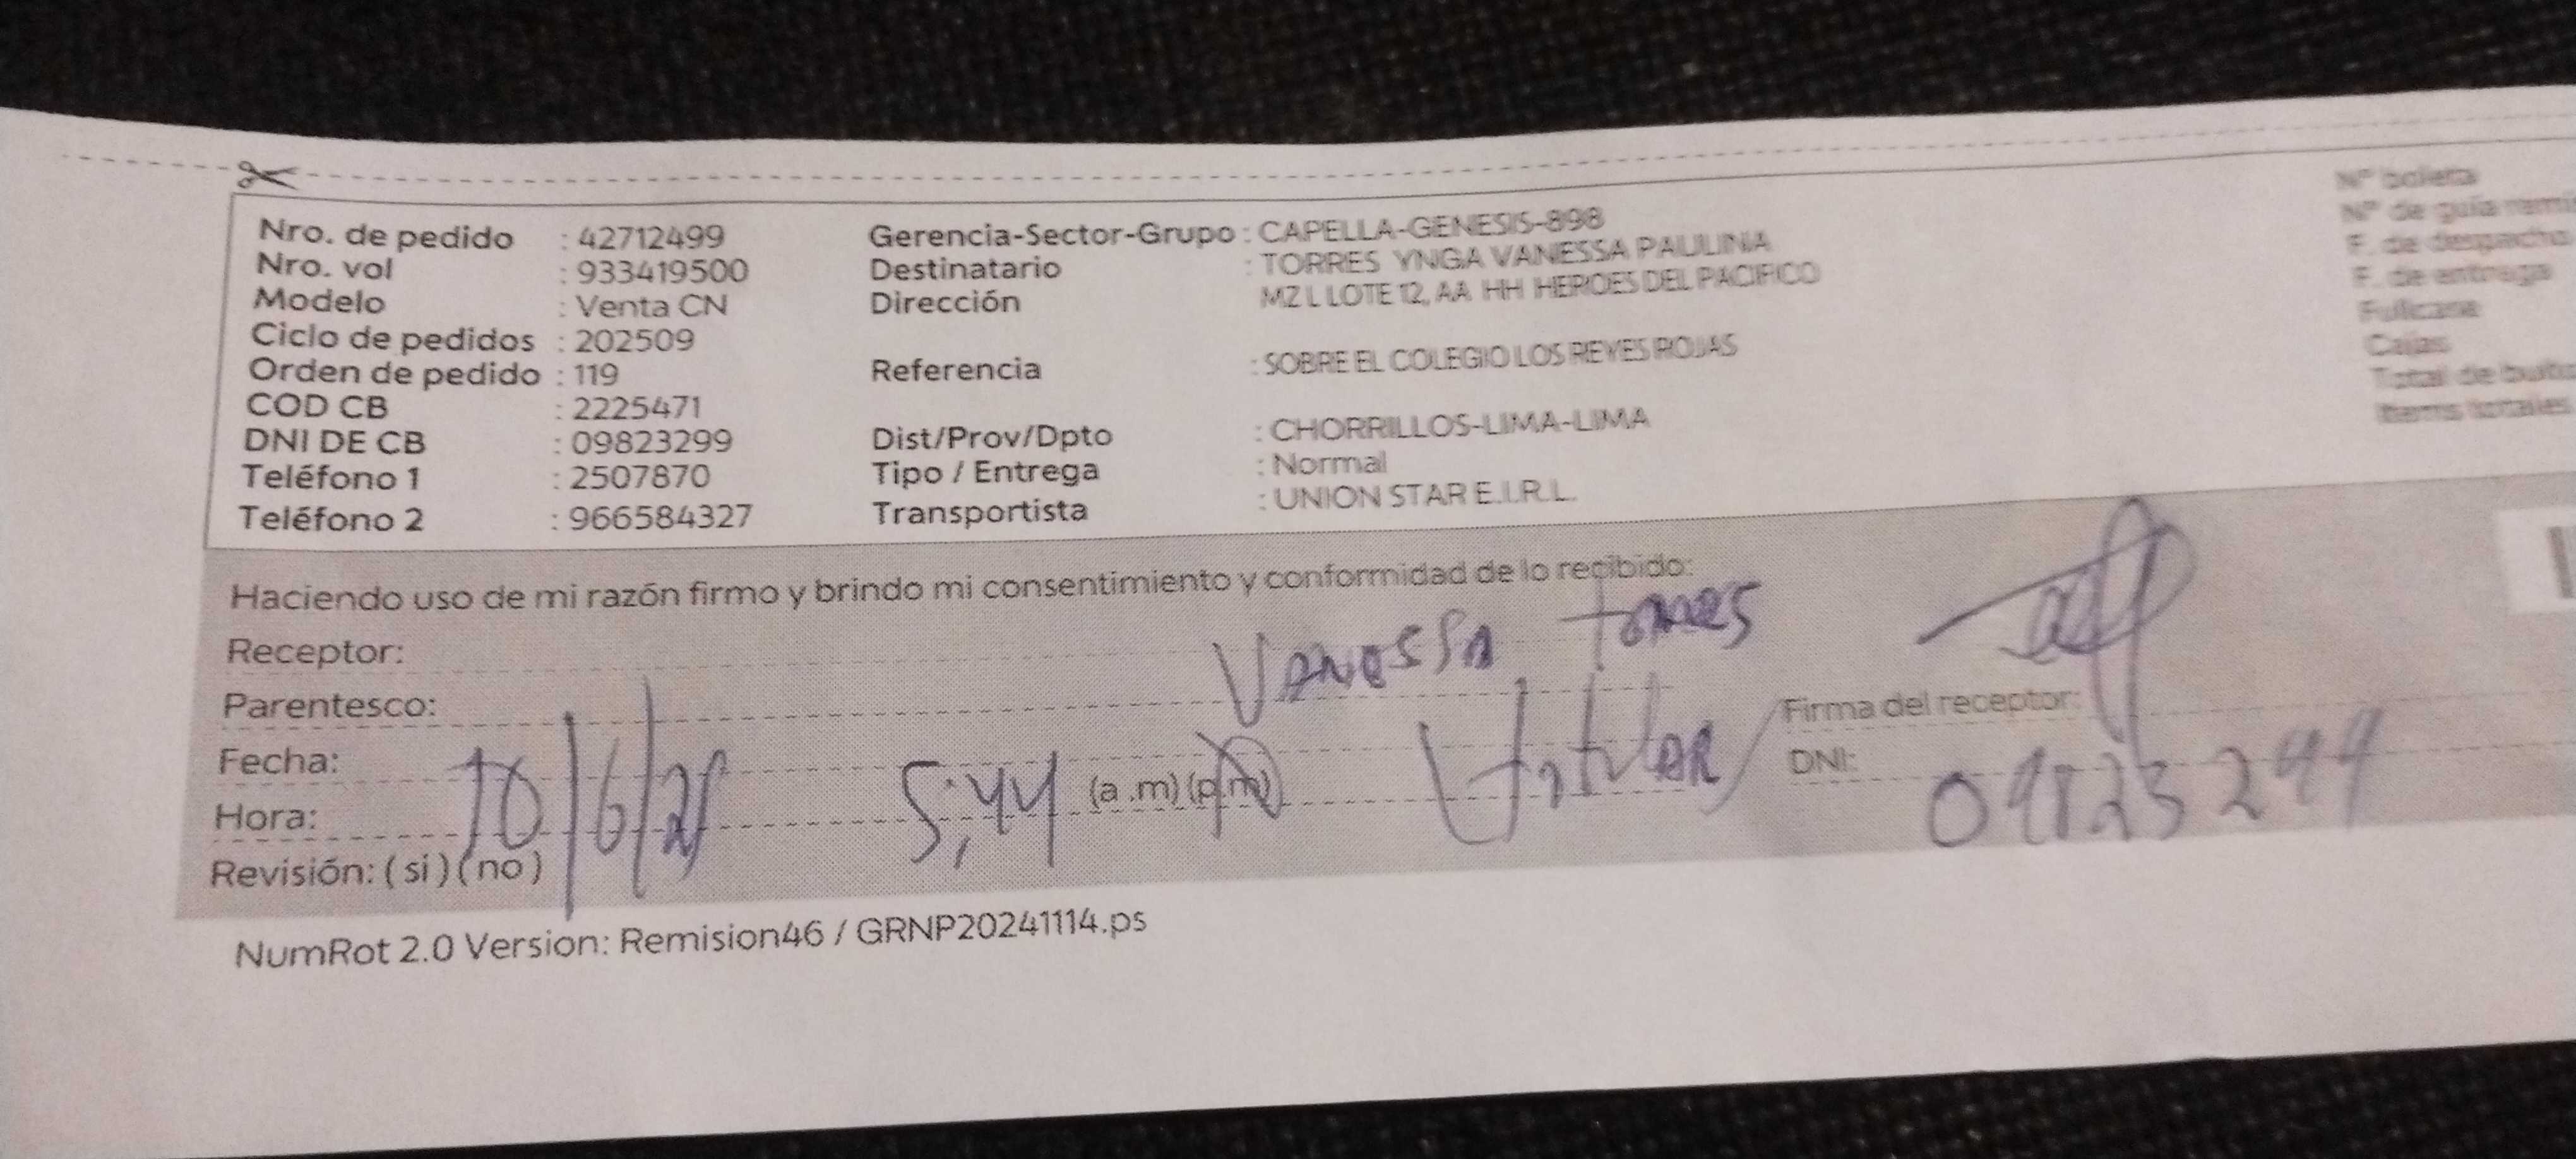 Nro. de pedido : 42712499
Nro. vol : 933419500
Modelo : Venta CN
Ciclo de pedidos : 202509
Orden de pedido : 119
COD CB : 2225471
DNI DE CB : 09823299
Teléfono 1 : 2507870
Teléfono 2 : 966584327
Gerencia-Sector-Grupo : CAPELLA-GENESIS-898
Destinatario : TORRES YNGA VANESSA PAULINA
Dirección MZ L LOTE 12, AA HH HEROES DEL PACIFICO
Referencia : SOBRE EL COLEGIO LOS REYES ROJAS
Dist/Prov/Dpto : CHORRILLOS-LIMA-LIMA
Tipo / Entrega : Normal
Transportista : UNION STAR E.I.R.L.
Nº boleta
Nº de guía
F. de despacho
F. de entrega
Fullcase
Cajas
Total de
Items totales
Haciendo uso de mi razón firmo y brindo mi consentimiento y conformidad de lo recibido:
Receptor: Vanessa Torres
Parentesco: titular
Firma del receptor:
Fecha: 10/6/25
DNI:
Hora: 5,44 (a.m) (p.m)
Revisión: ( si ) ( no )
NumRot 2.0 Version: Remision46 / GRNP20241114.ps